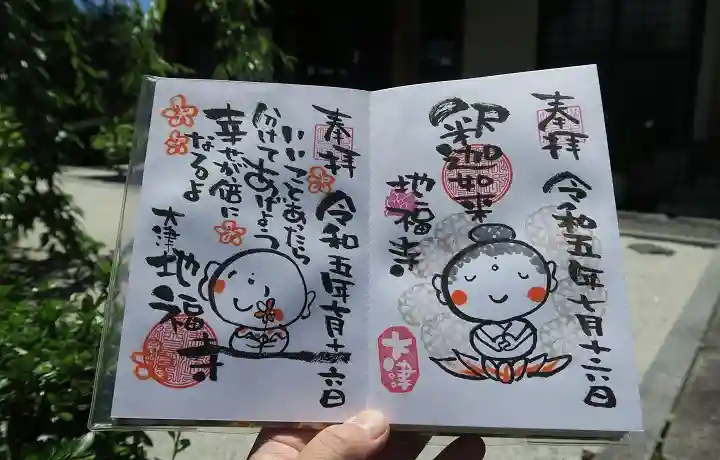 奉拝
令和五年七月十六日
釈迦如来
地福寺
大津
奉拝
令和五年七月十六日
いいことあったら
分けてあげよう
幸せが倍に
なるよ
大津
地福寺